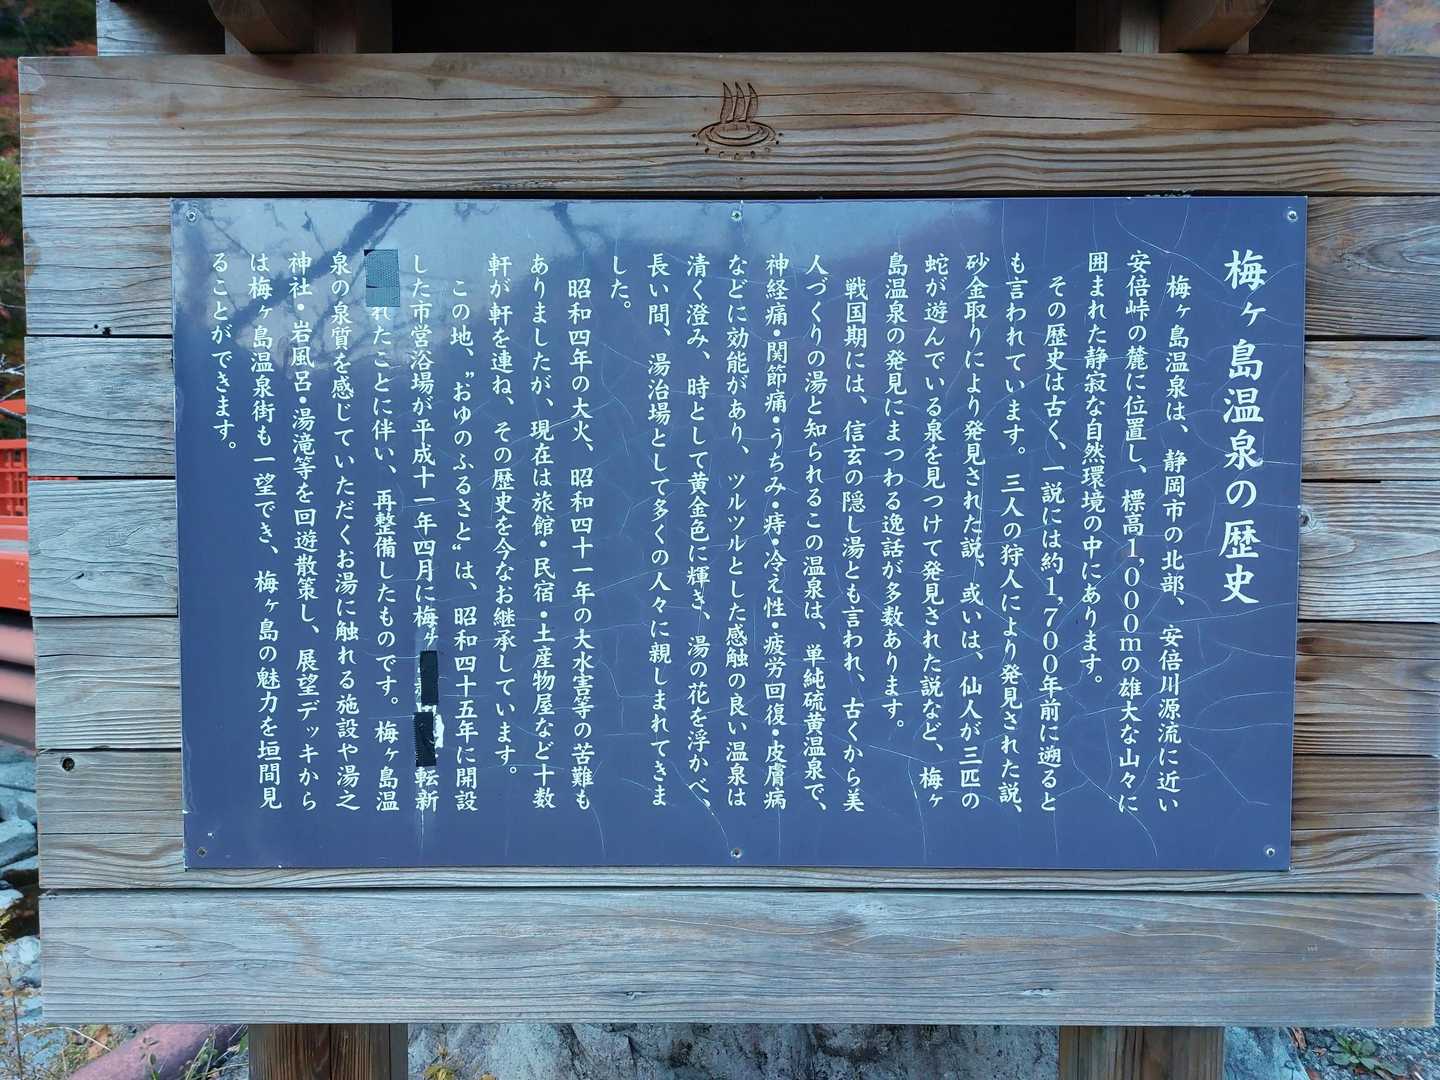 梅ヶ島温泉の歴史
梅ヶ島温泉は、静岡市の北部、安倍川源流に近い
安倍峠の麓に位置し、標高1,000mの雄大な山々に
囲まれた静寂な自然環境の中にあります。
その歴史は古く、一説には約1,700年前に遡ると
も言われています。三人の狩人により発見された説、
砂金取りにより発見された説、或いは、仙人が三匹の
蛇が遊んでいる泉を見つけて発見された説など、梅ヶ
島温泉の発見にまつわる逸話が多数あります。
戦国期には、信玄の隠し湯とも言われ、古くから美
人づくりの湯と知られるこの温泉は、単純硫黄温泉で、
神経痛・関節痛・うちみ・痔・冷え性・疲労回復・皮膚病
などに効能があり、ツルツルとした感触の良い温泉は
清く澄み、時として黄金色に輝き、湯の花を浮かべ、
長い間、湯治場として多くの人々に親しまれてきま
した。
昭和四年の大火、昭和四十一年の大水害等の苦難も
ありましたが、現在は旅館・民宿・土産物屋など十数
軒が軒を連ね、その歴史を今なお継承しています。
この地、〝おゆのふるさと〟は、昭和四十五年に開設
した市営浴場が平成十一年四月に梅ヶ転新
れたことに伴い、再整備したものです。梅ヶ島温
泉の泉質を感じていただくお湯に触れる施設や湯之
神社・岩風呂・湯滝等を回遊散策し、展望デッキから
は梅ヶ島温泉街も一望でき、梅ヶ島の魅力を垣間見
ることができます。